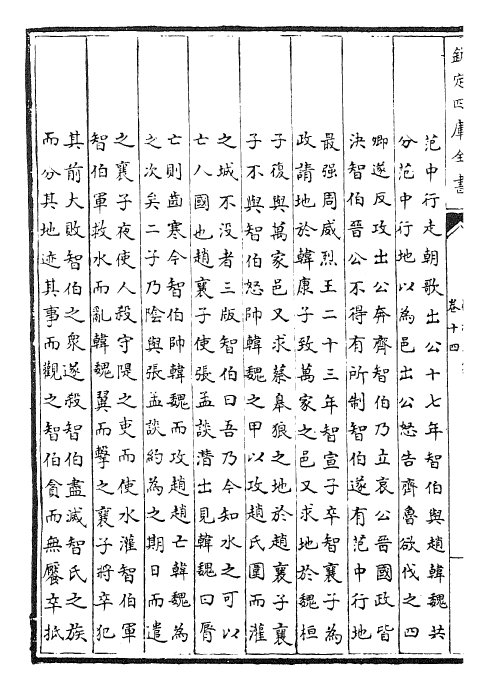 欽定四庫全書
卷十四
范中行走朝歌出公十七年智伯與趙韓魏共
分范中行地以為邑出公怒告齊魯欲伐之四
卿遂反攻出公奔齊智伯乃立哀公晉國政皆
決智伯晉公不得有所制智伯遂有范中行地
最强周威烈王二十三年智宣子卒智襄子為
政請地於韓康子致萬家之邑又求地於魏桓
子復與萬家邑又求蔡皋狼之地於趙襄子襄
子不與智伯怒帥韓魏之甲以攻趙氏圍而灌
之城不没者三版智伯曰吾乃今知水之可以
亡人國也趙襄子使張孟談潛出見韓魏曰脣
亡則齒寒今智伯帥韓魏而攻趙趙亡韓魏為
之次矣二子乃陰與張孟談約為之期日而遣
之襄子夜使人殺守隄之吏而使水灌智伯軍
智伯軍救水而亂韓魏翼而擊之襄子將卒犯
其前大敗智伯之衆遂殺智伯盡滅智氏之族
而分其地迹其事而觀之智伯貪而無饜卒抵